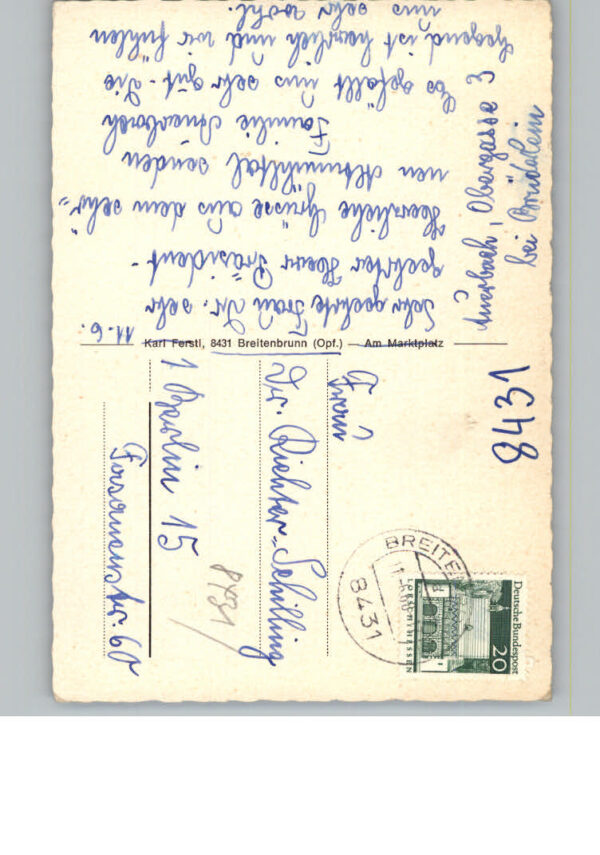 11.6.
Sehr geehrte Frau Dr. sehr
geehrter Herr Präsident -
Herzliche Grüsse aus dem sehr
nen Altmühltal senden
Familie Auerbach
Es gefällt uns sehr gut - Die
Gegend ist herrlich und wir fühlen
uns sehr wohl.
Auerbach, Obergasse 3
bei
Karl Ferstl, 8431 Breitenbrunn (Opf.) — Am Marktplatz
8431
Frau
Dr. Richter-Schilling
1 Berlin 15
8431
BREITEN
8431
Deutsche Bundespost
20
LORSCH/HESSEN